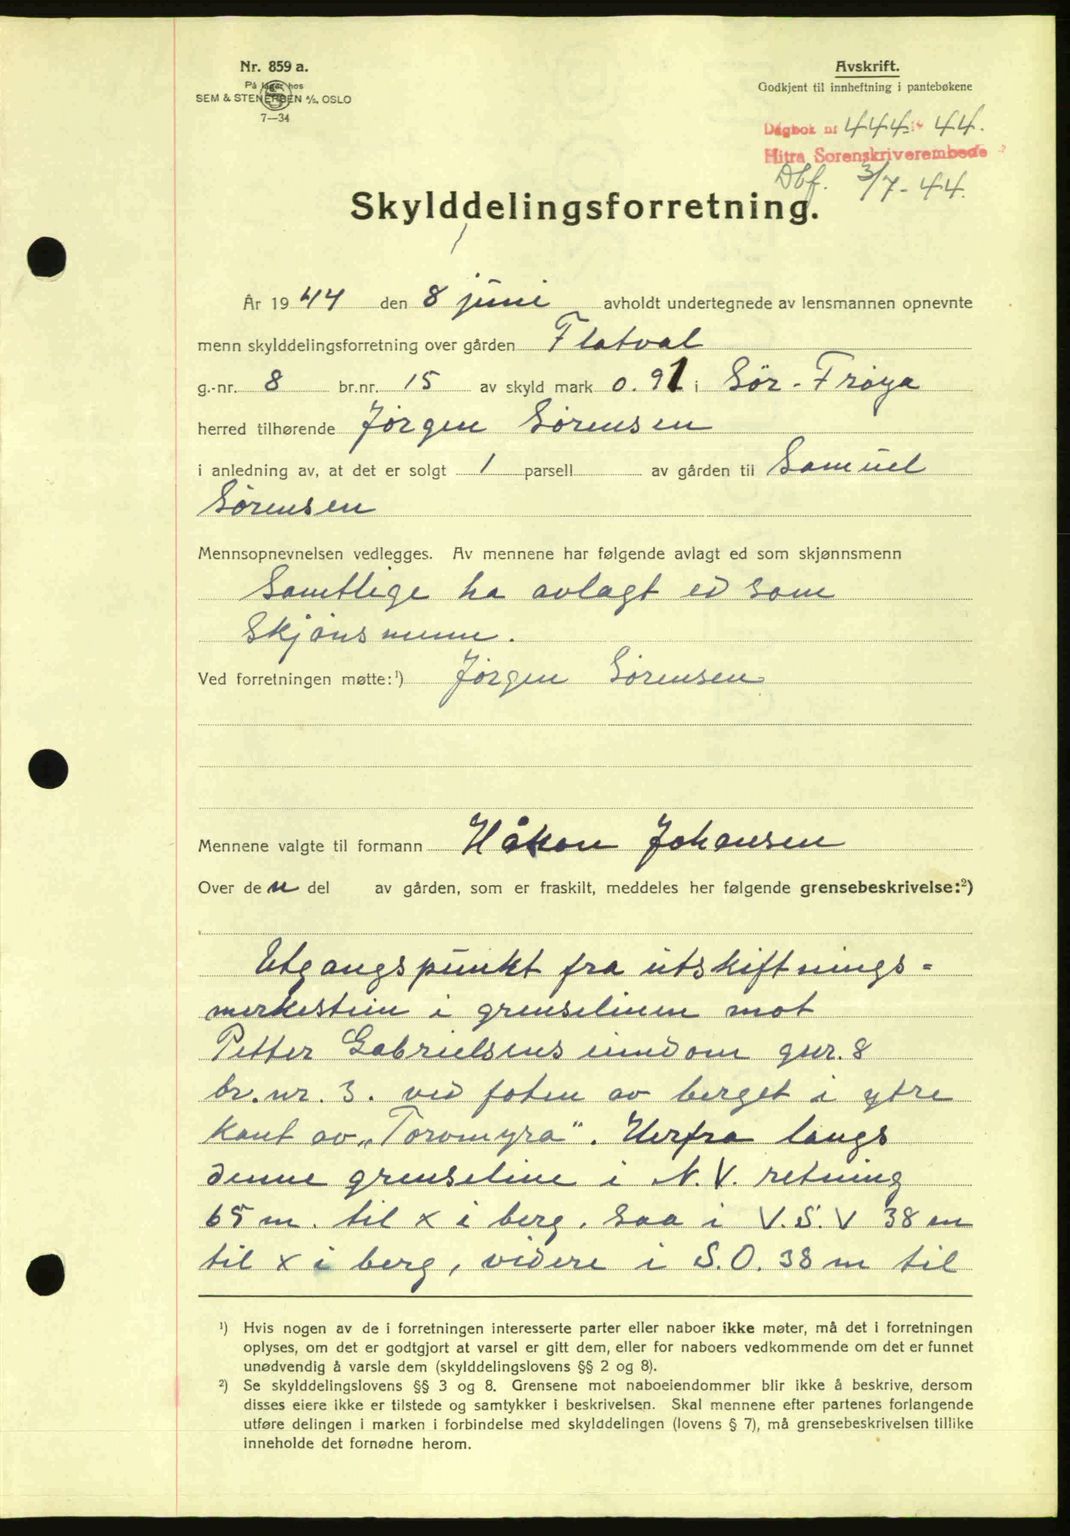 Nr. 859 a.
På lager hos
SEM & STENERSEN A/S, OSLO
7—34
Avskrift.
Godkjent til innheftning i pantebøkene
Dagbok nr 444 - 44.
Hitra Sorenskriverembede
Dbf. 3/7-44.
Skylddelingsforretning.
År 1944 den 8 juni avholdt undertegnede av lensmannen opnevnte
menn skylddelingsforretning over gården Flatval
g.-nr. 8 br.nr. 15 av skyld mark 0.91 i Sør-Frøya
herred tilhørende Jørgen Sørensen
i anledning av, at det er solgt 1 parsell av gården til Samuel
Sørensen
Mennsopnevnelsen vedlegges. Av mennene har følgende avlagt ed som skjønnsmenn
Samtlige ha avlagt ed som
skjønsmenn.
Ved forretningen møtte:¹) Jørgen Sørensen
Mennene valgte til formann Håkon Johansen
Over den del av gården, som er fraskilt, meddeles her følgende grensebeskrivelse:²)
Utgangspunkt fra utskiftnings-
merkestein i grenselinen mot
Petter Gabrielsens eiendom gnr. 8
br. nr. 3. ved foten av berget i ytre
kant av „Torvmyra". Herfra langs
denne grenseline i N.V. retning
65 m. til x i berg, saa i V.S.V 38 m
til x i berg, videre i S.O. 38 m til
¹) Hvis nogen av de i forretningen interesserte parter eller naboer ikke møter, må det i forretningen
oplyses, om det er godtgjort at varsel er gitt dem, eller for naboers vedkommende om det er funnet
unødvendig å varsle dem (skylddelingslovens §§ 2 og 8).
²) Se skylddelingslovens §§ 3 og 8. Grensene mot naboeiendommer blir ikke å beskrive, dersom
disses eiere ikke er tilstede og samtykker i beskrivelsen. Skal mennene efter partenes forlangende
utføre delingen i marken i forbindelse med skylddelingen (lovens § 7), må grensebeskrivelsen tillike
inneholde det fornødne herom.